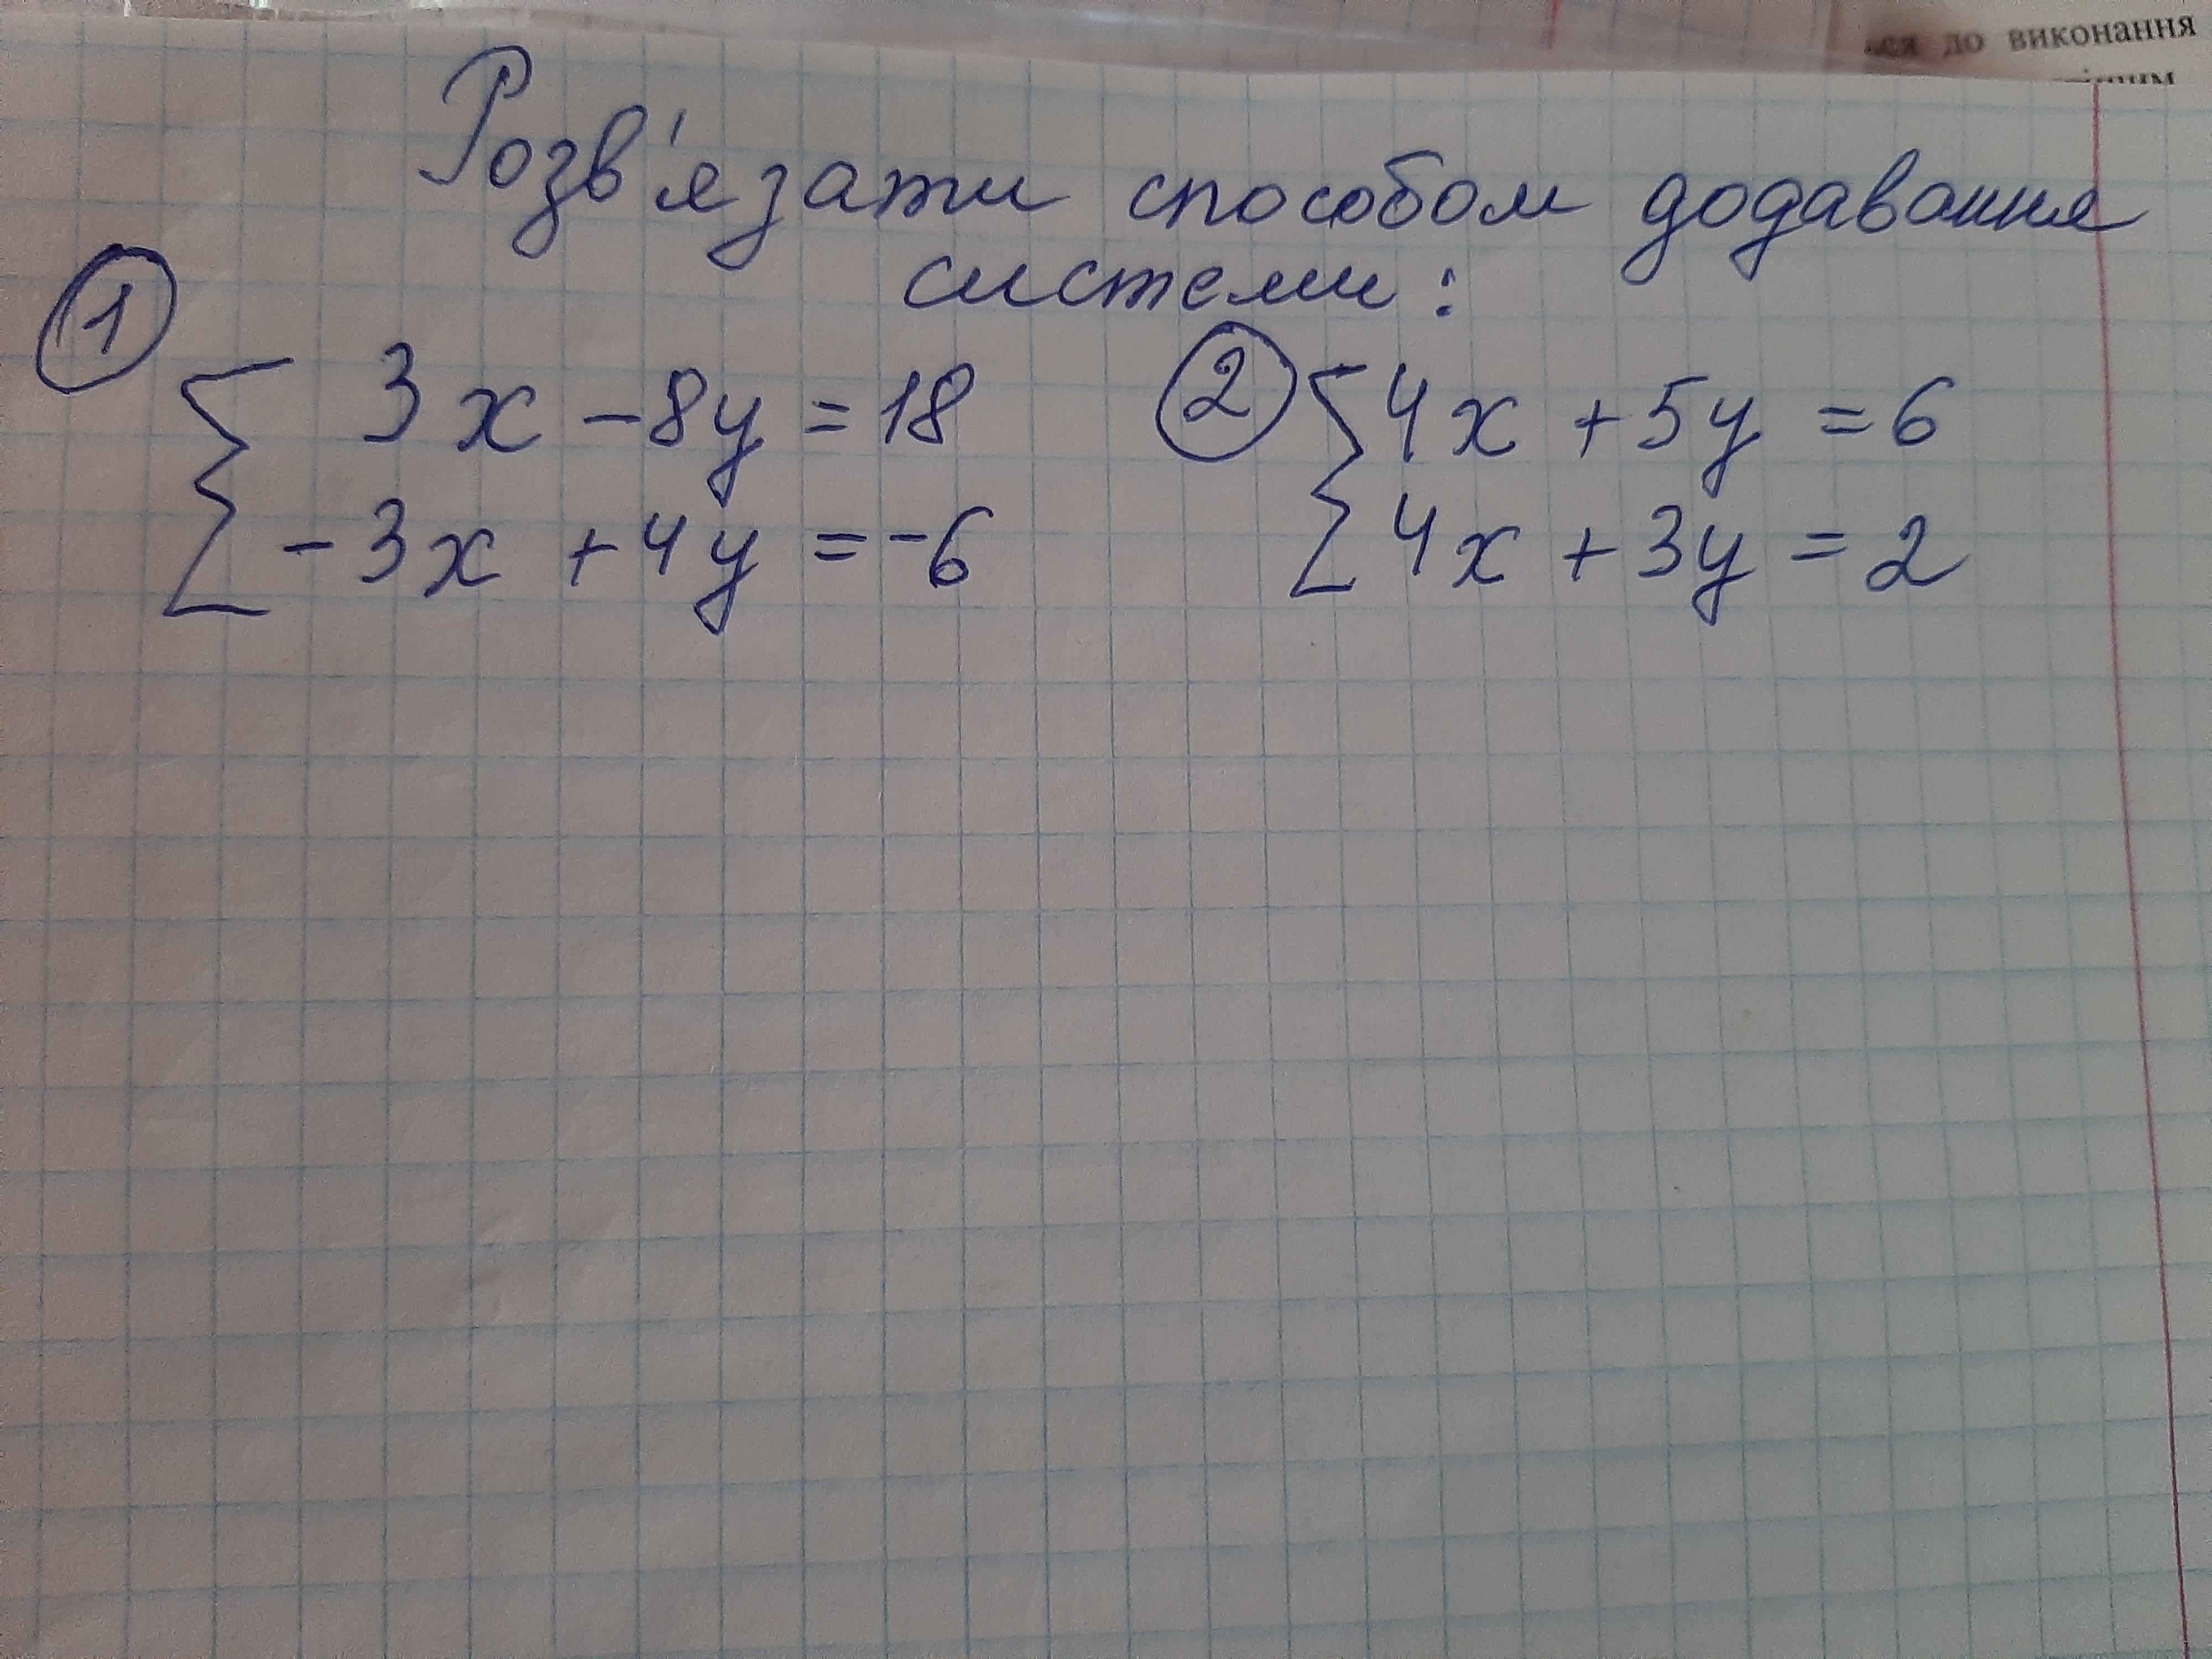 до виконання
Розв'язати способом додавання
системи:
① { 3x - 8y = 18
-3x + 4y = -6
② { 4x + 5y = 6
4x + 3y = 2